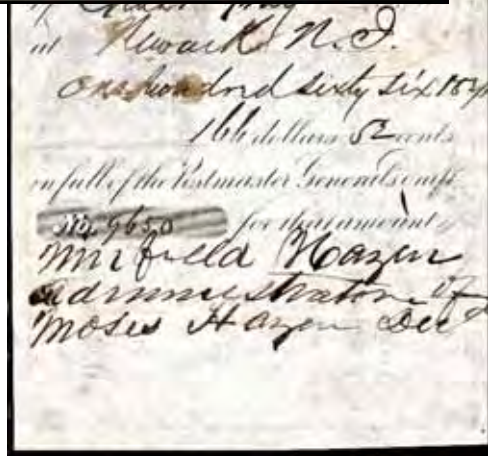 at Newark N.J.
one hundred sixty six
166 dollars 52 cents
in full of the Postmaster General's
No. 9650 for that amount
Hazen
administrator of
Moses Hazen Decd